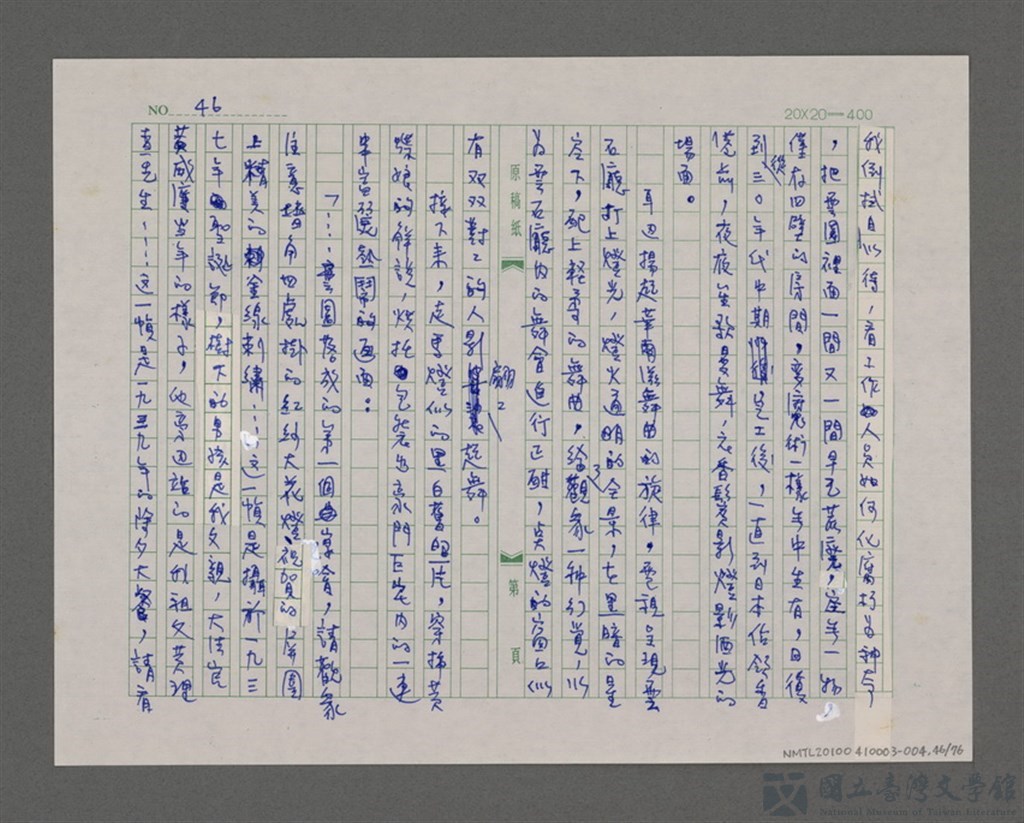 NO. 46
20X20=400
我倒拭目以待，看工作人員如何化腐朽為神奇
，把雲園裡面一間又一間早已荒廢，空無一物
僅存四壁的房間，變魔術一樣無中生有，回復
到三〇年代中期後完工後，一直到日本佔領香
港前，夜夜笙歌曼舞，衣香鬢影燈影酒光的
場面。
耳边揚起華爾滋舞曲的旋律，電視呈現雲
石廳打上燈光，燈火通明的全景，在黑暗的星
空下，配上輕柔的舞曲，給了觀眾一种幻覺，以
為雲石廳內的舞會進行正酣，吳燈的窗口似
有双双對對的人影翩翩起舞。
原稿紙
第 頁
接下來，走馬燈似的黑白舊照片，穿插黃
蝶娘的解說，烘托包裝出豪門巨宅內的一連
串富麗熱鬧的画面：
「…雲園落成的第一個宴會，請觀眾
注意墻角四處掛的紅紗大花燈，祝賀的屏圍
上精美的金線刺繡…這一幀是攝於一九三
七年聖誕節，樹下的男孩是我父親，大法官
黃威廉当年的樣子，他旁边站的是我祖父黃理
查先生…這一幀是一九三九年的除夕大餐，請看
NMTL20100410003-004.46/76
國立臺灣文學館
National Museum of Taiwan Literature